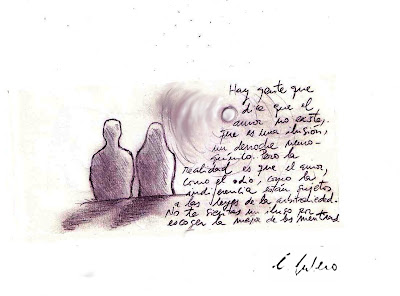 Hay gente que
dice que el
amor no existe,
que es una ilusión,
un derroche
químico. Pero la
realidad es que el amor,
como el odio, como la
indiferencia están sujetos
a las leyes de la arbitrariedad.
No te sientas un iluso por
escoger la mejor de las mentiras